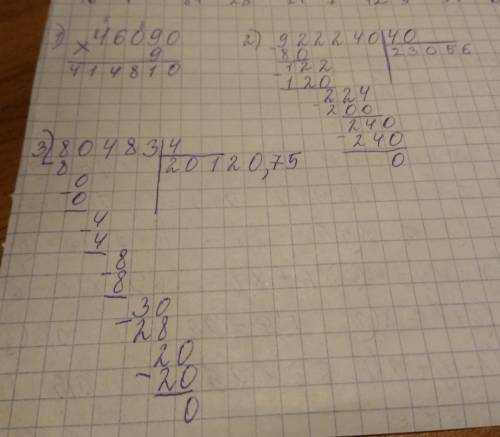 1) 46090
× 9
414810
2) 922240 | 40
80 23056
- 122
120
- 224
200
- 240
- 240
0
3) 80483 | 4
8 20120,75
- 0
0
- 4
4
- 8
8
- 30
28
20
- 20
0